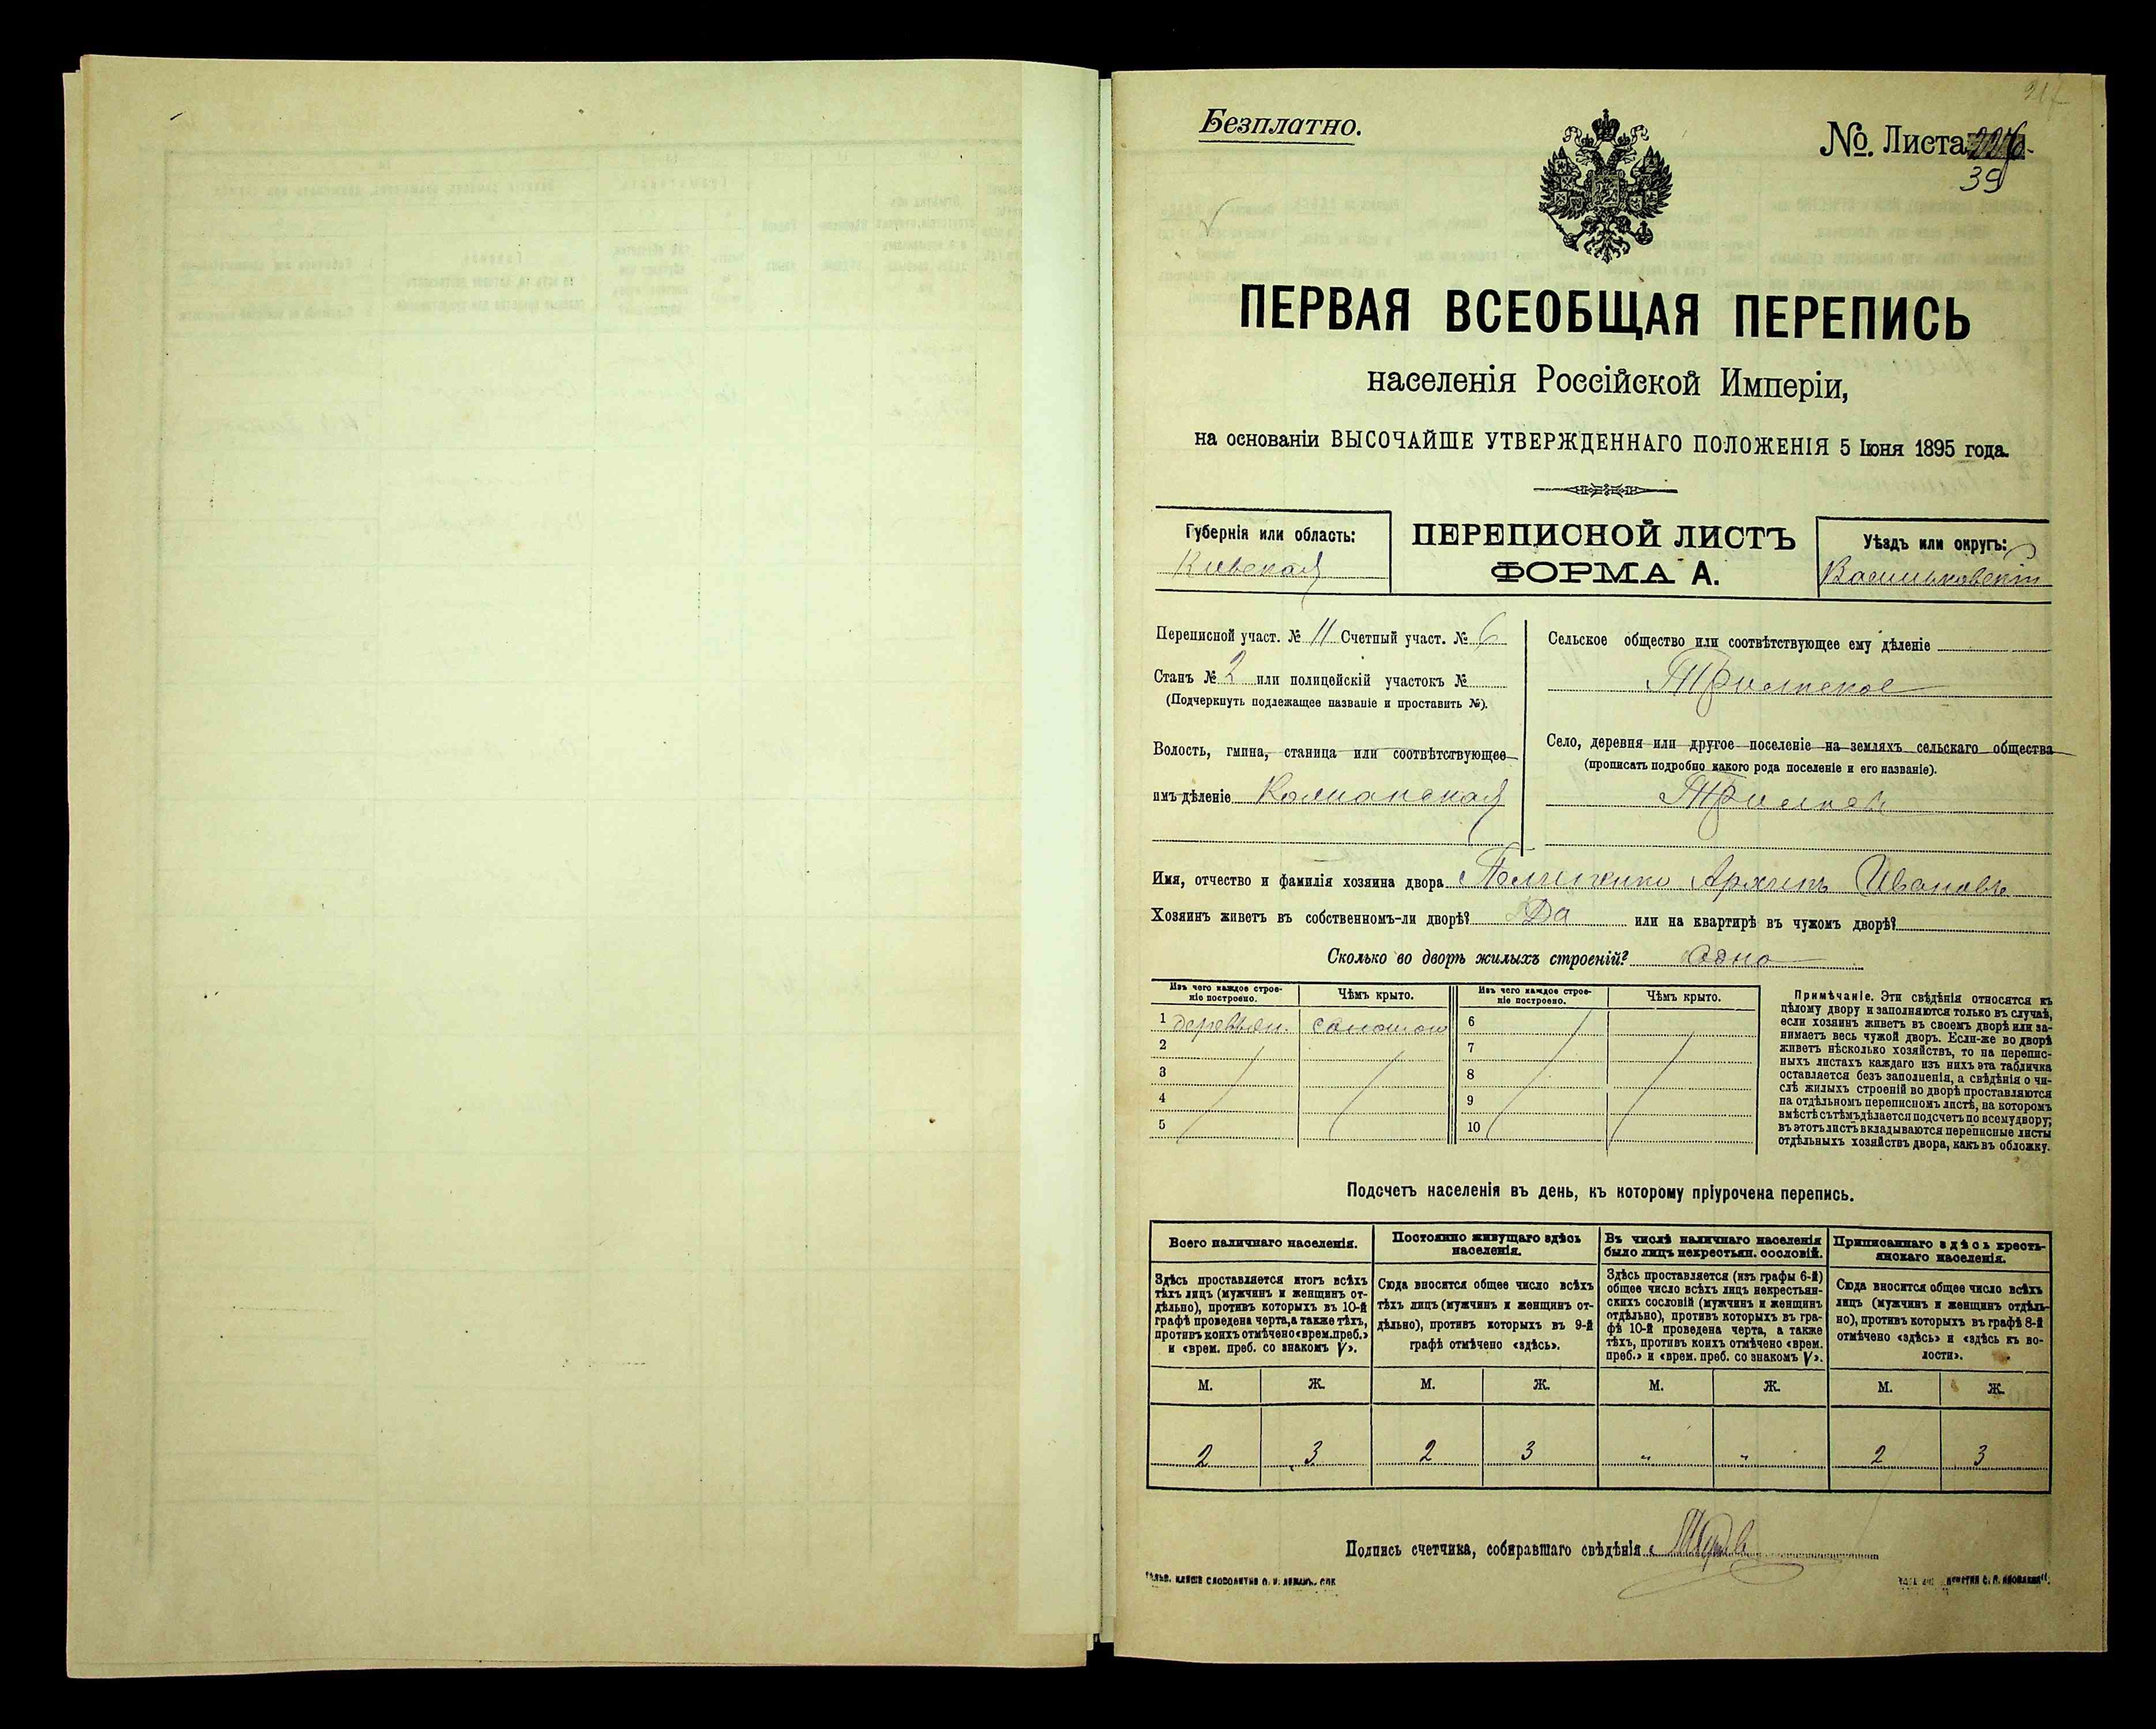 Безплатно.
№. Листа
39
ПЕРВАЯ ВСЕОБЩАЯ ПЕРЕПИСЬ
населенія Россійской Имперіи,
на основаніи ВЫСОЧАЙШЕ УТВЕРЖДЕННАГО ПОЛОЖЕНІЯ 5 Іюня 1895 года.
Губернія или область:
Кіевская
ПЕРЕПИСНОЙ ЛИСТЪ
ФОРМА А.
Уѣздъ или округъ:
Васильковскій
Переписной участ. № 11 Счетный участ. № 6
Станъ № 2 или полицейскій участокъ №
(Подчеркнуть подлежащее названіе и проставить №).
Волость, гмина, станица или соотвѣтствующее
имъ дѣленіе
Сельское общество или соотвѣтствующее ему дѣленіе
Трилѣсское
Село, деревня или другое поселеніе на земляхъ сельскаго общества
(прописать подробно какого рода поселеніе и его названіе).
Имя, отчество и фамилія хозяина двора Архипъ Ивановъ
Хозяинъ живетъ въ собственномъ-ли дворѣ? Да или на квартирѣ въ чужомъ дворѣ?
Сколько во дворѣ жилыхъ строеній? Одно
Изъ чего каждое строе-
ніе построено.
Чѣмъ крыто.
Изъ чего каждое строе-
ніе построено.
Чѣмъ крыто.
1 деревян. соломой 6
2 7
3 8
4 9
5 10
Примѣчаніе. Эти свѣдѣнія относятся къ
цѣлому двору и заполняются только въ случаѣ,
если хозяинъ живетъ въ своемъ дворѣ или за-
нимаетъ весь чужой дворъ. Если-же во дворѣ
живетъ нѣсколько хозяйствъ, то на перепис-
ныхъ листахъ каждаго изъ нихъ эта табличка
оставляется безъ заполненія, а свѣдѣнія о чи-
слѣ жилыхъ строеній во дворѣ проставляются
на отдѣльномъ переписномъ листѣ, на которомъ
вмѣстѣ съ тѣмъ дѣлается подсчетъ по всему двору;
въ этотъ листъ вкладываются переписные листы
отдѣльныхъ хозяйствъ двора, какъ въ обложку.
Подсчетъ населенія въ день, къ которому пріурочена перепись.
Всего наличнаго населенія.
Постоянно живущаго здѣсь
населенія.
Въ числѣ наличнаго населенія
было лицъ некрестьян. сословій.
Приписаннаго здѣсь кресть-
янскаго населенія.
Здѣсь проставляется итогъ всѣхъ
тѣхъ лицъ (мужчинъ и женщинъ от-
дѣльно), противъ которыхъ въ 10-й
графѣ проведена черта, а также тѣхъ,
противъ коихъ отмѣчено «врем. преб.»
и «врем. преб. со знакомъ V».
Сюда вносится общее число всѣхъ
тѣхъ лицъ (мужчинъ и женщинъ от-
дѣльно), противъ которыхъ въ 9-й
графѣ отмѣчено «здѣсь».
Здѣсь проставляется (изъ графы 6-й)
общее число всѣхъ лицъ некрестьян-
скихъ сословій (мужчинъ и женщинъ
отдѣльно), противъ которыхъ въ гра-
фѣ 10-й проведена черта, а также
тѣхъ, противъ коихъ отмѣчено «врем.
преб.» и «врем. преб. со знакомъ V».
Сюда вносится общее число всѣхъ
лицъ (мужчинъ и женщинъ отдѣль-
но), противъ которыхъ въ графѣ 8-й
отмѣчено «здѣсь» и «здѣсь къ во-
лости».
М. Ж. М. Ж. М. Ж. М. Ж.
2 3 2 3 " " 2 3
Подпись счетчика, собиравшаго свѣдѣнія